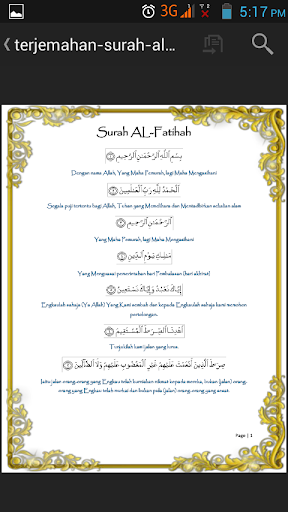 3G 5:17 PM
terjemahan-surah-al...
Surah AL-Fatihah
بِسْمِ ٱللَّهِ ٱلرَّحْمَٰنِ ٱلرَّحِيمِ ﴿١﴾
Dengan nama Allah, Yang Maha Pemurah, lagi Maha Mengasihani
ٱلْحَمْدُ لِلَّهِ رَبِّ ٱلْعَٰلَمِينَ ﴿٢﴾
Segala puji tertentu bagi Allah, Tuhan yang Memelihara dan Mentadbirkan sekalian alam
ٱلرَّحْمَٰنِ ٱلرَّحِيمِ ﴿٣﴾
Yang Maha Pemurah, lagi Maha Mengasihani
مَٰلِكِ يَوْمِ ٱلدِّينِ ﴿٤﴾
Yang Menguasai pemerintahan hari Pembalasan (hari akhirat)
إِيَّاكَ نَعْبُدُ وَإِيَّاكَ نَسْتَعِينُ ﴿٥﴾
Engkaulah sahaja (Ya Allah) Yang Kami sembah dan kepada Engkaulah sahaja kami memohon
pertolongan.
ٱهْدِنَا ٱلصِّرَٰطَ ٱلْمُسْتَقِيمَ ﴿٦﴾
Tunjukilah kami jalan yang lurus.
صِرَٰطَ ٱلَّذِينَ أَنْعَمْتَ عَلَيْهِمْ غَيْرِ ٱلْمَغْضُوبِ عَلَيْهِمْ وَلَا ٱلضَّآلِّينَ ﴿٧﴾
Iaitu jalan orang-orang yang Engkau telah kurniakan nikmat kepada mereka, bukan (jalan) orang-
orang yang Engkau telah murkai dan bukan pula (jalan) orang-orang yang sesat.
Page | 1